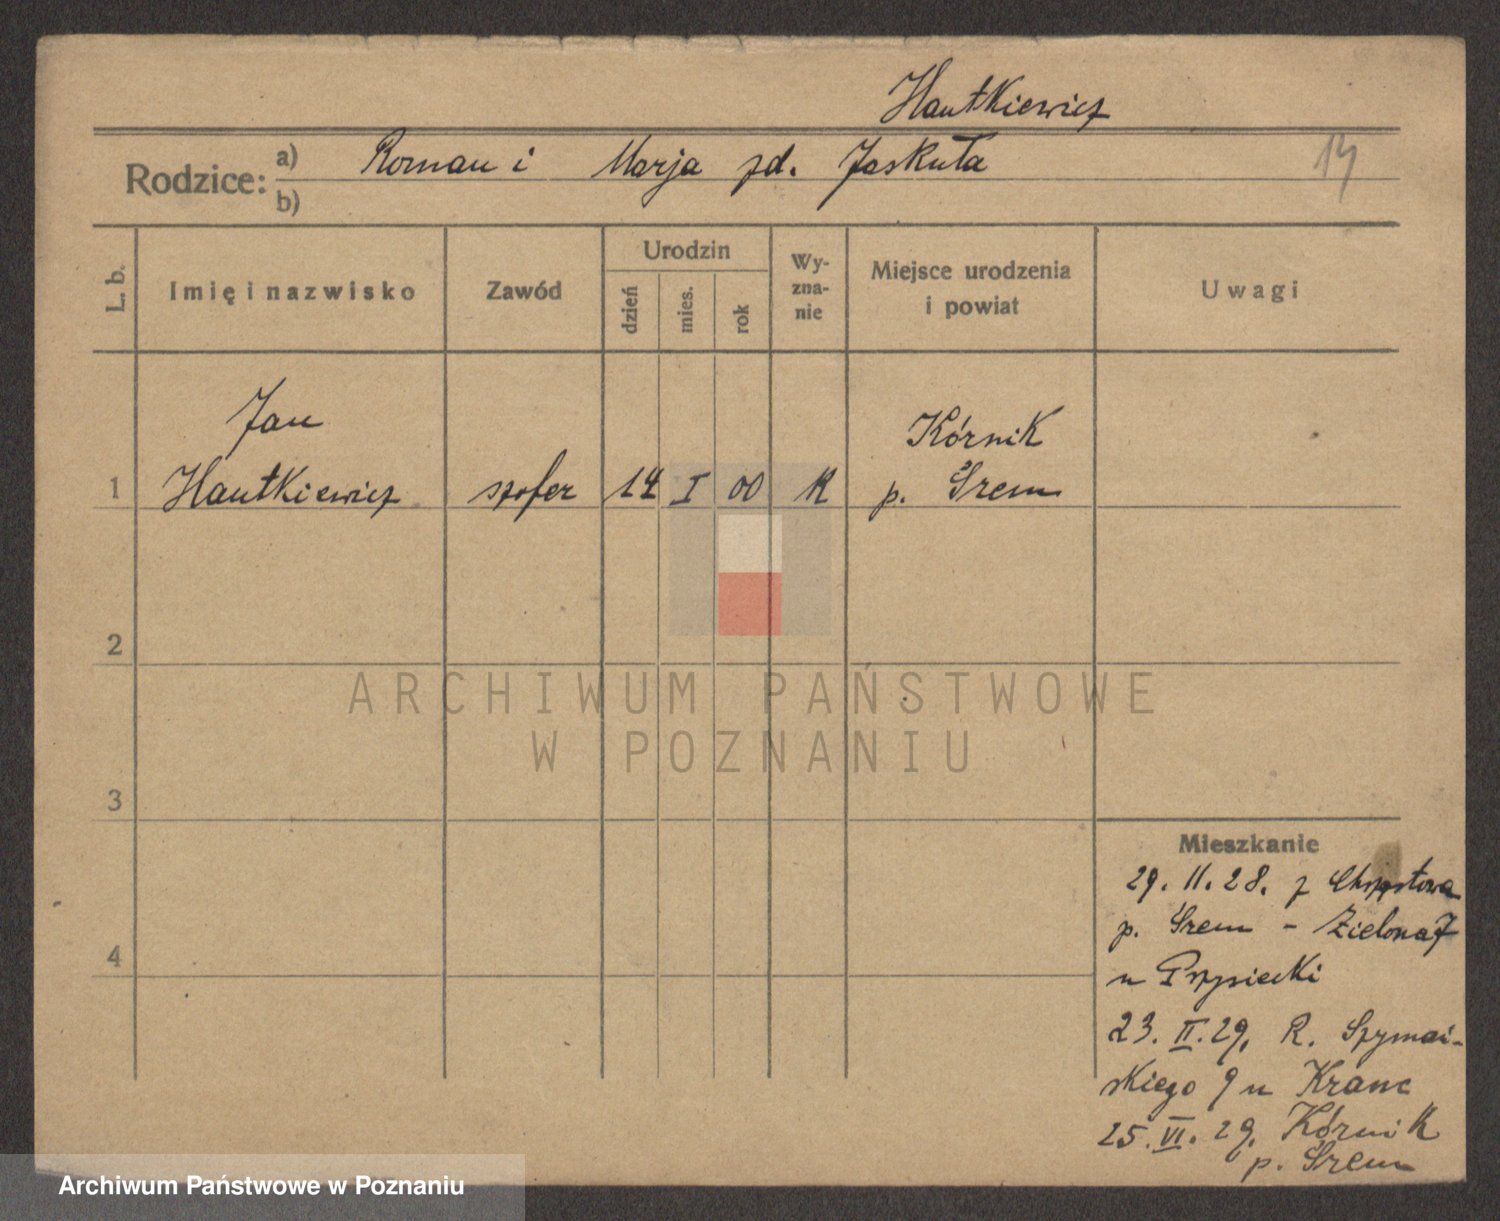 Hautkiewicz
Rodzice: a) Roman i Marja zd. Jaskuła
b)
14
L. b. Imię i nazwisko Zawód Urodzin dzień mies. rok Wyzna-nie Miejsce urodzenia i powiat Uwagi
Jan Kórnik
1 Hautkiewicz szofer 14 I 00 K p. Śrem
2
ARCHIWUM PAŃSTWOWE
W POZNANIU
3
Mieszkanie
29. 11. 28. z
p. Śrem - Zielona 7
u Przysiecki
23. II. 29. R. Szymań-
skiego 9 u Kranc
25. VI. 29. Kórnik
p. Śrem
4
Archiwum Państwowe w Poznaniu